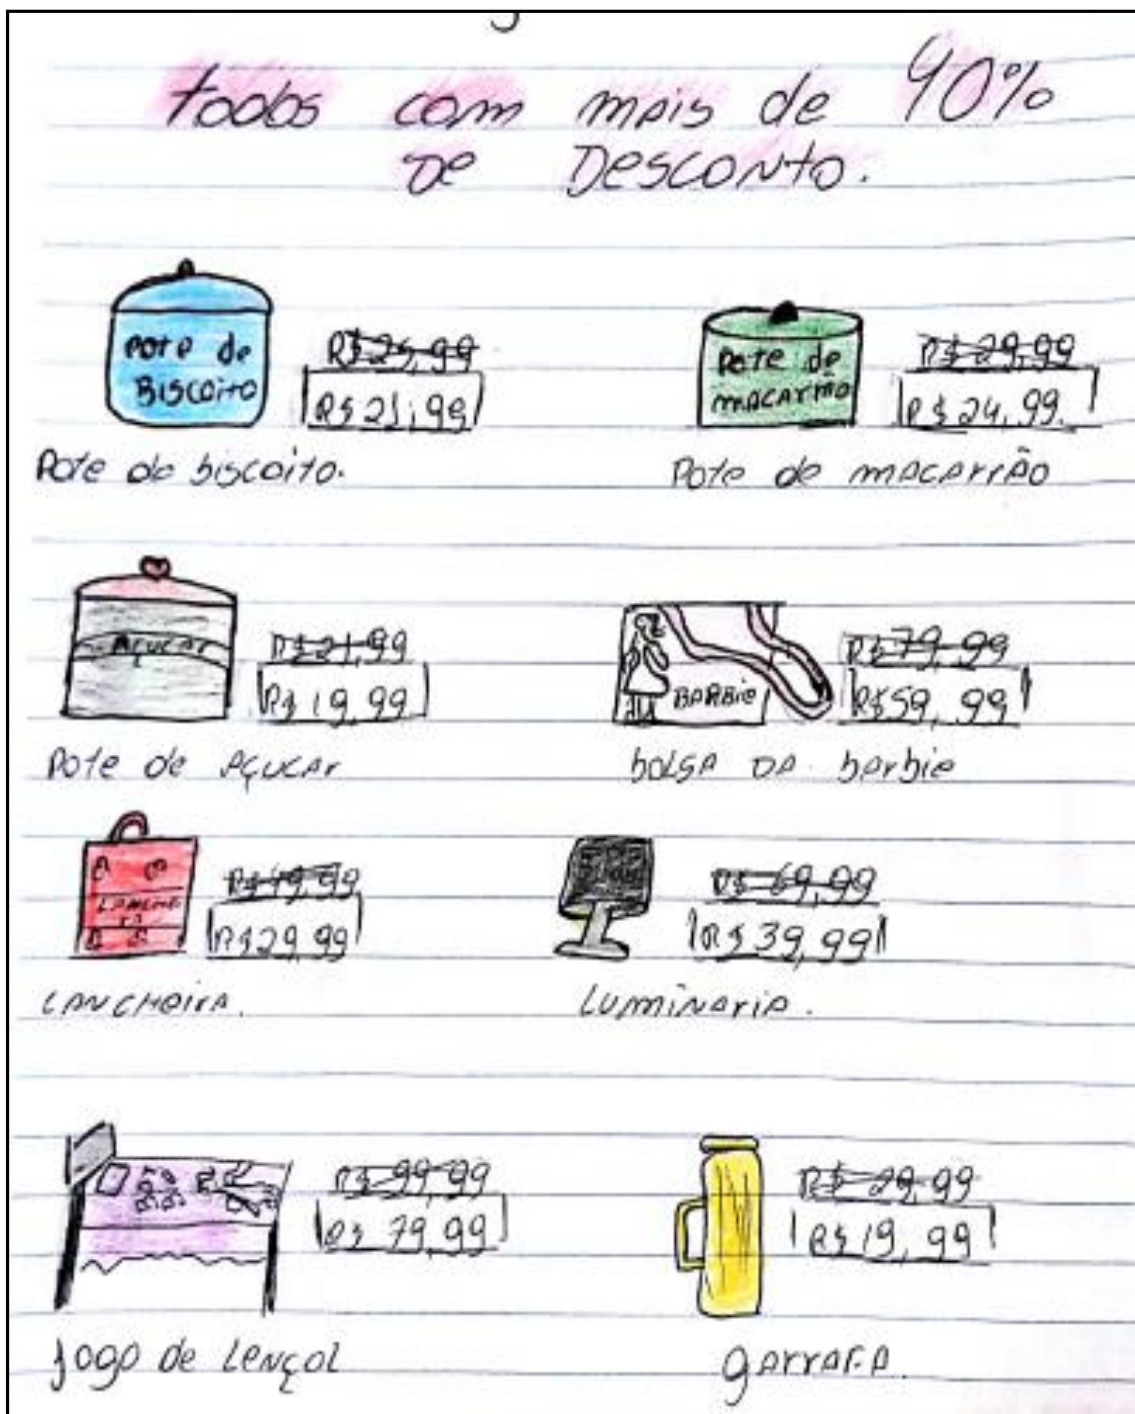 todos com mais de 40%
de Desconto.
Pote de
Biscoito
R$ 25,99
R$ 21,99
Pote de biscoito.
Pote de
macarrão
R$ 29,99
R$ 24,99
Pote de macarrão
Açucar
R$ 21,99
R$ 19,99
Pote de Açucar
BARBie
R$ 79,99
R$ 59,99
bolsa da barbie
R$ 49,99
R$ 29,99
LANCHeira.
R$ 69,99
R$ 39,99
Luminaria.
R$ 99,99
R$ 79,99
Jogo de Lençol
R$ 29,99
R$ 19,99
garrafa.